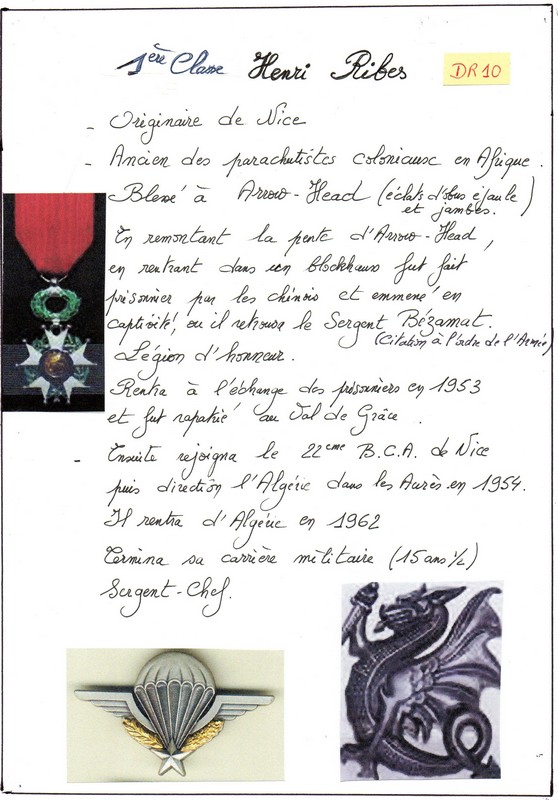 1ère Classe Henri Ribes DR10
- Originaire de Nice
- Ancien des parachutistes coloniaux en Afrique.
Blessé à Arrow-Head (éclats d'obus épaule
et jambes.)
En remontant la pente d'Arrow-Head,
en rentrant dans un blockhaus fut fait
prisonnier par les chinois et emmené en
captivité, ou il retrouve le Sergent Bézamat.
(Citation à l'ordre de l'Armée)
Légion d'honneur.
Rentra à l'échange des prisonniers en 1953
et fut rapatrié au Val de Grâce.
- Ensuite rejoigna le 22ème B.C.A. de Nice
puis direction l'Algérie dans les Aurès en 1954.
Il rentra d'Algérie en 1962
Termina sa carrière militaire (15 ans ½)
Sergent-Chef.